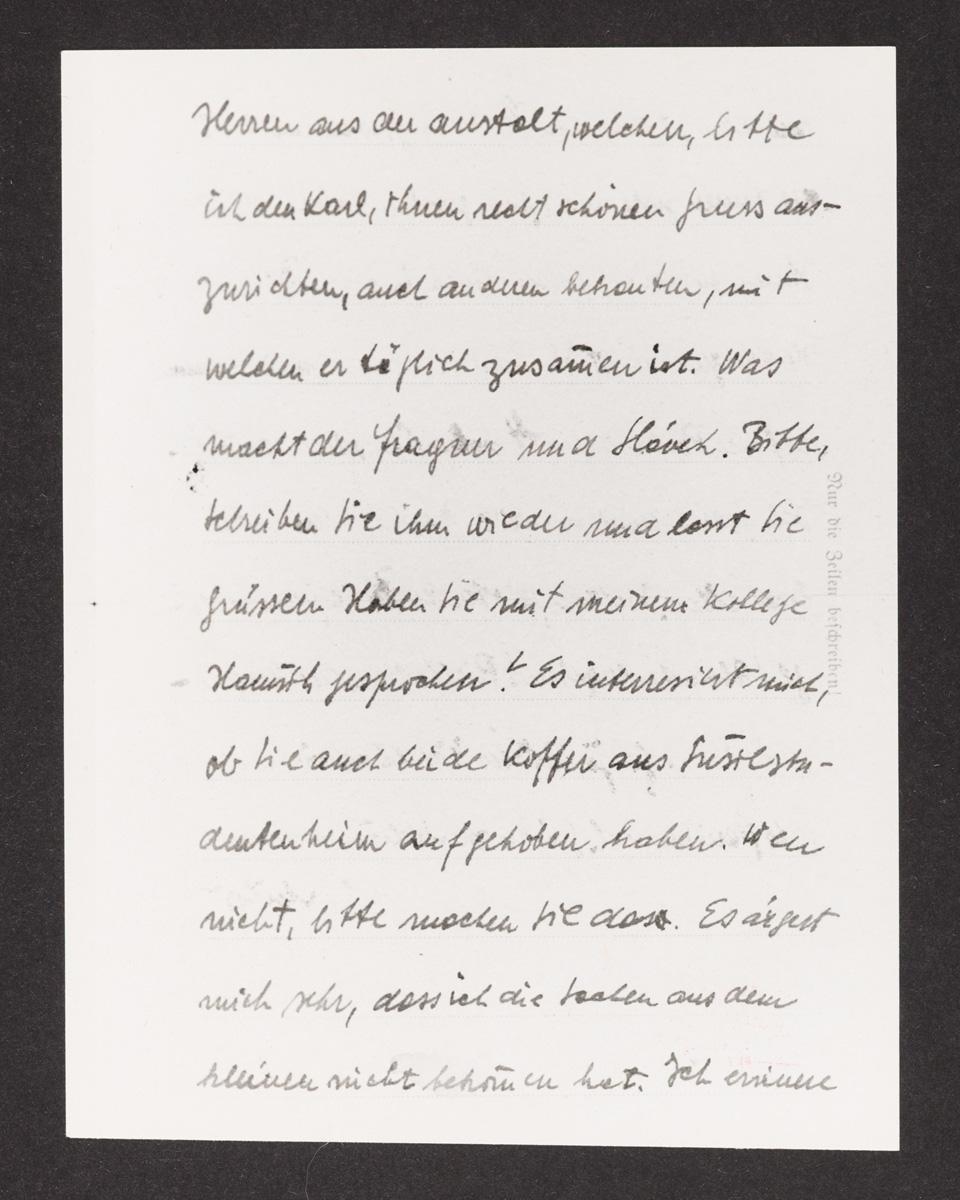 Herren aus der anstalt, welchen, bitte
ich den Karl, ihnen recht schönen gruss aus-
zurichten, auch anderen bekanten, mit
welchen er täglich zusam̄en ist. Was
macht der fragner und Slávek. Bitte,
schreiben Sie ihm wieder und lasst Sie
grüssen Haben Sie mit meinem Kollege
gesprochen? Es interresiert mich,
ob Sie auch beide Koffer aus
dentenheim aufgehoben haben. Wen
nicht, bitte machen Sie dass. Es ärgert
mich sehr, dass ich die sachen aus dem
kleinen nicht bekom̄en hat. Ich erinere
Nur die Zeilen beschreiben!